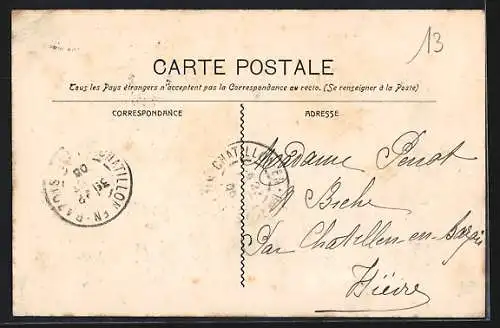 13
CARTE POSTALE
Tous les Pays étrangers n'acceptent pas la Correspondance au recto. (Se renseigner à la Poste)
CORRESPONDANCE
ADRESSE
CHATILLON-EN-BAZOIS
CHATILLON-EN-
Madame
Biche
Par Chatillon-en-Bazois
Nièvre